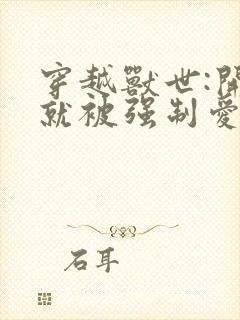 穿越獸世:開
就被强制愛
石耳